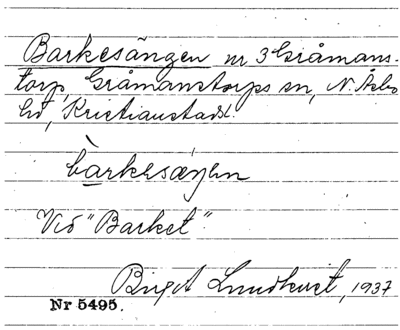 Barkesängen nr 3 Gråmans-
torp, Gråmanstorps sn, N. Åsbo
hd, Kristianstads l.
bàrkesæŋen
Vid "Barket".
Birgit Lundkvist, 1937
Nr 5495.